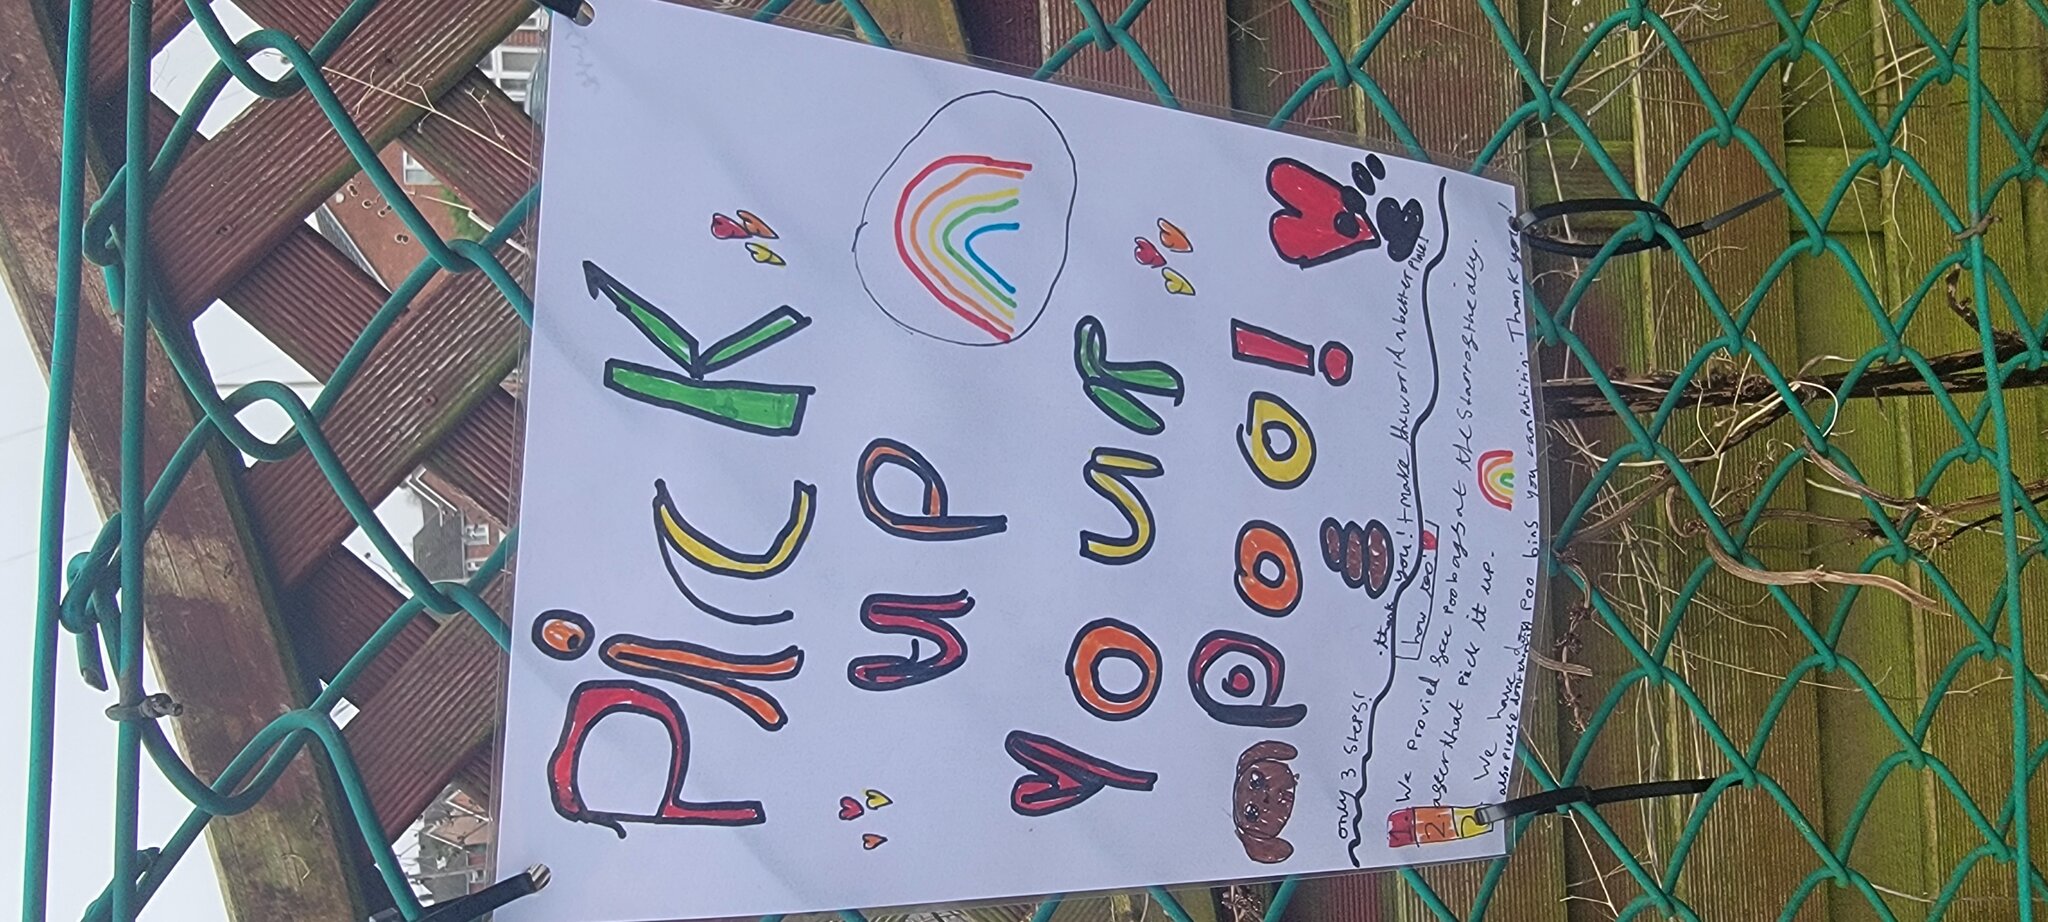 Pick
up
your
poo!
only 3 steps!
thank you! + make the world a better place!
how too!
1. We provied see poo bags at the start
2. after that pick it up.
3 We have poo bins you can put it in. Thank you!
also please dont